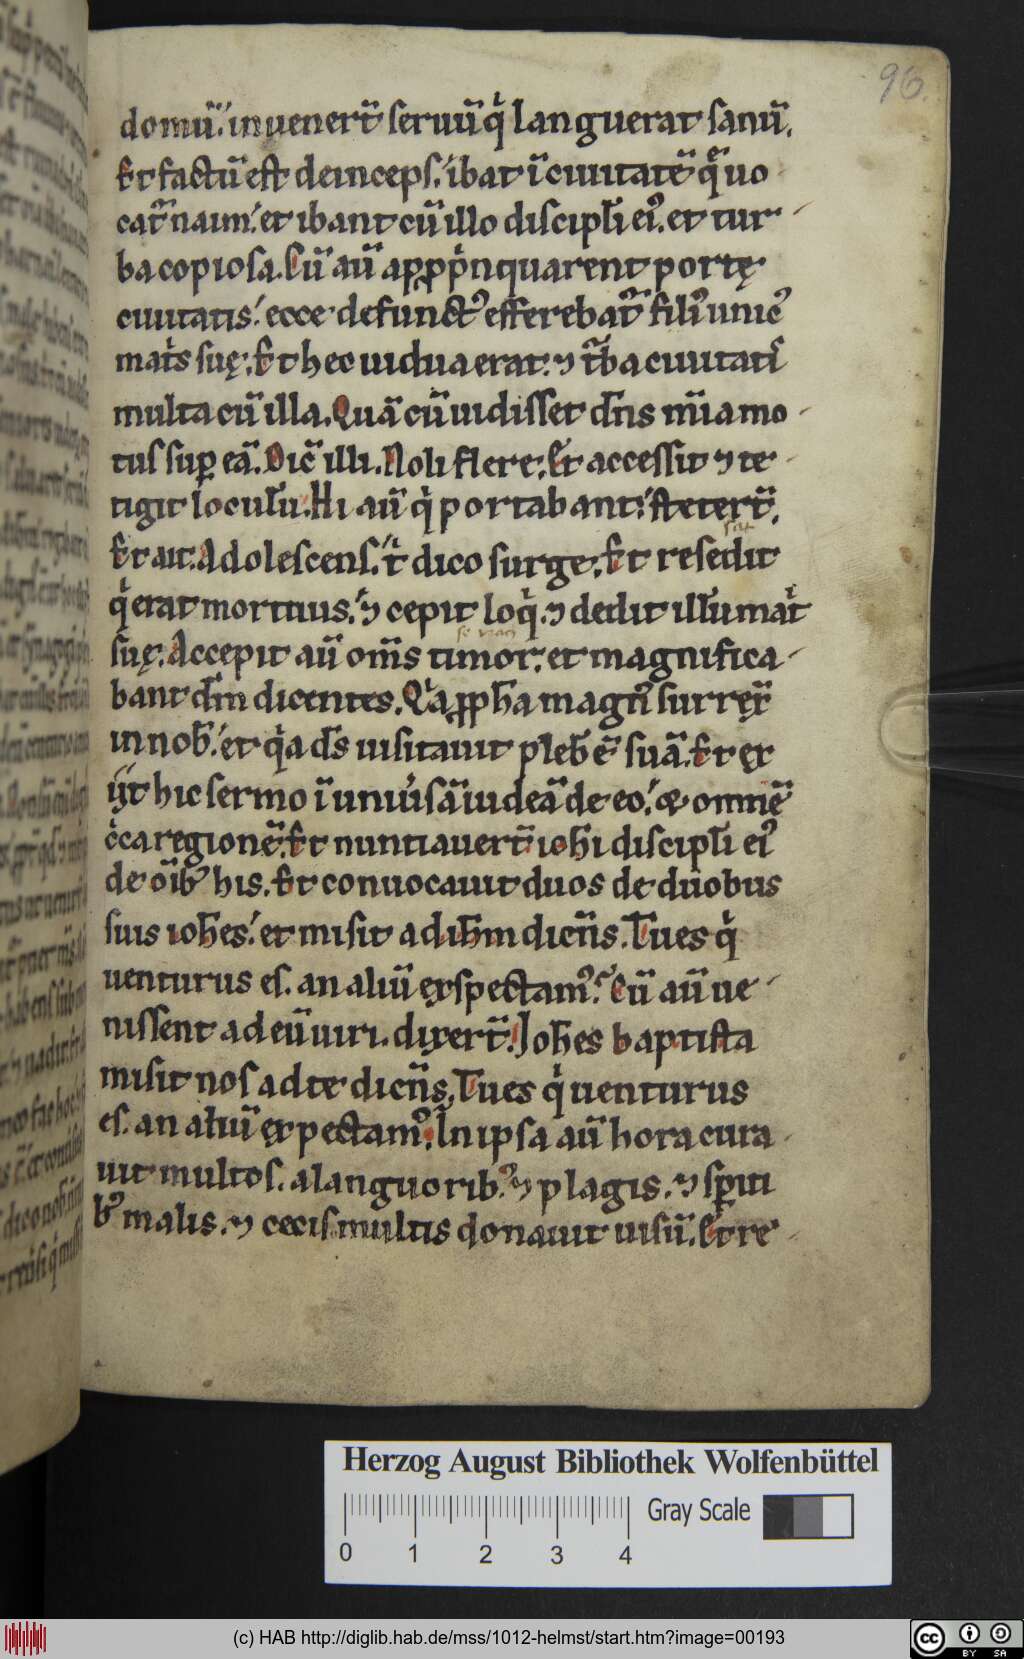 96.
domū. inuenert̄ seruū qͥ languerat sanū.
Et factū est deinceps. ibat ī ciuitatē q̄ uo
cat̄ naim. et ibant cū illo discipl̄i eiꝰ. et tur
ba copiosa. Cū aū appͥnquarent portę
ciuitatis. ecce defunctꝰ efferebat̄ filiꝰ unicꝰ
matͥs suę. Et hec uidua erat. ⁊ t̄ba ciuitatͥ
multa cū illa. Quā cū uidisset dn̄s mīa mo
tus sup eā. Dic̄ illi. Noli flere. Et accessit ⁊ te
tigit locul̄u. Hi aū qͥ portabant. stetert̄.
Et ait. Adolescens. tͥ dico surge. Et resedit
qͥ erat mortuus. ⁊ cepit loqͥ. ⁊ dedit illū matͥ
suę. Accepit aū om̄s timor. et magnifica
bant dm̄ dicentes. Qͥa ꝓph̄a magnꝰ surrex̄
in nob̄. et qͥa ds̄ uisitauit plebē suā. Et ex
iit hic sermo ī uniuͥsā iudeā de eo. & omnē
cͥca regionē. Et nuntiauert̄ ioh̄i discipl̄i eiꝰ
de oīb; his. Et conuocauit duos de duobus
suis ioh̄es. et misit ad ih̄m dicn̄s. Tu es qͥ
uenturus es. an aliū exspectamꝰ. Cū aū ue
nissent ad eū uiri. dixert̄. Ioh̄es baptista
misit nos ad te dicn̄s. Tu es qͥ uenturus
es. an aliū expectamꝰ. In ipsa aū hora cura
uit multos. a languoribꝰ ⁊ plagis. ⁊ spiti
bꝰ malis. ⁊ cecis multis donauit uisū. Et re
Herzog August Bibliothek Wolfenbüttel
Gray Scale
0 1 2 3 4
(c) HAB http://diglib.hab.de/mss/1012-helmst/start.htm?image=00193
cc BY SA